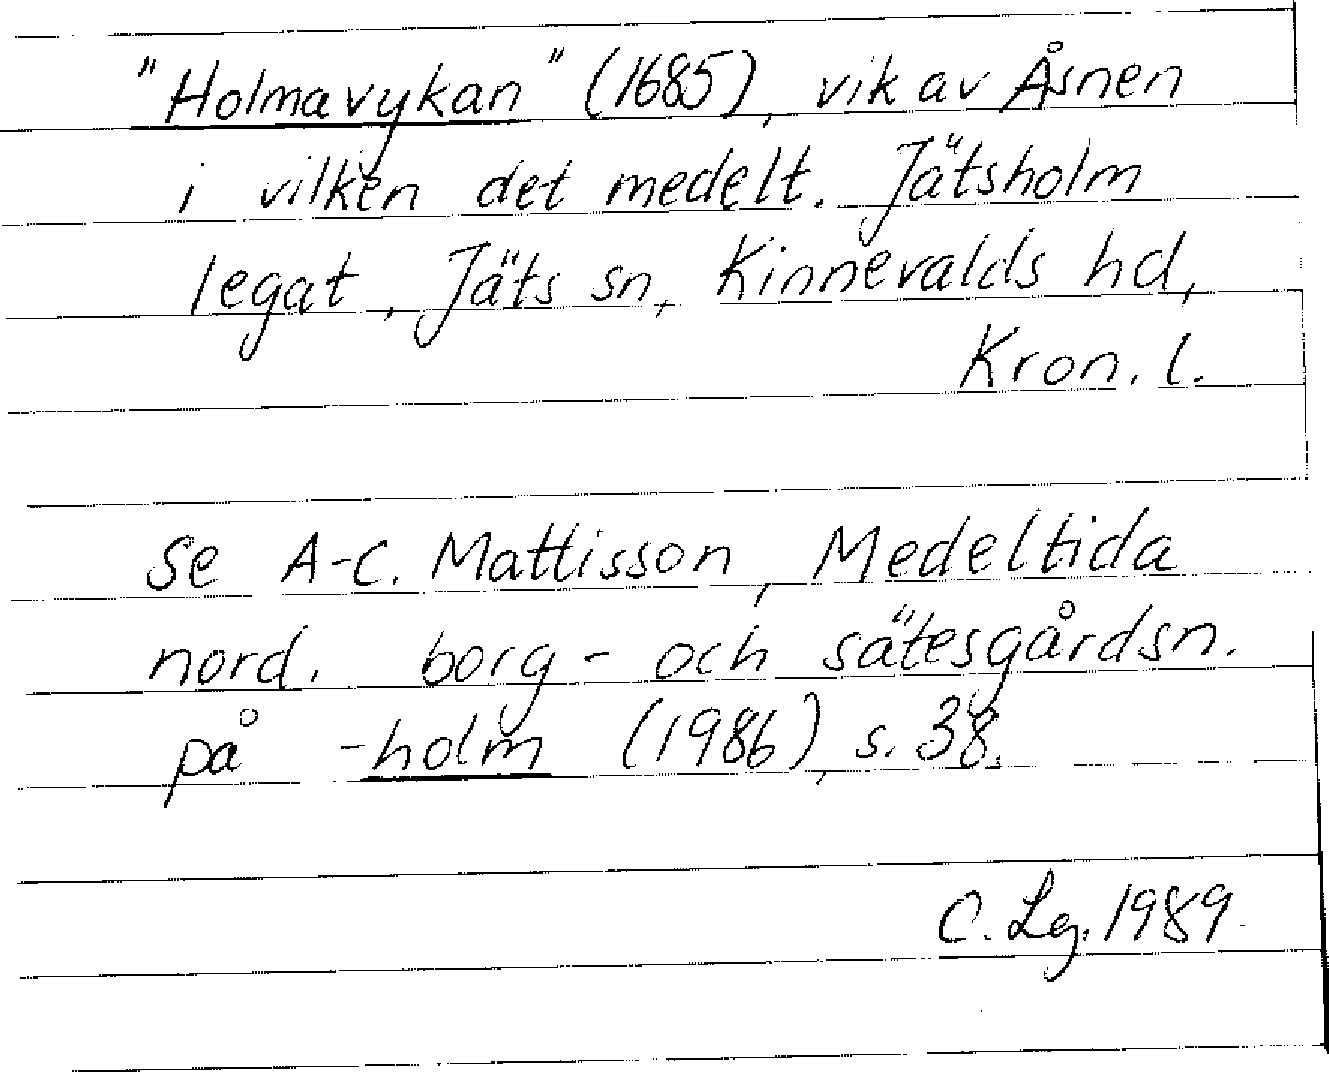 "Holmavykan" (1685), vik av Åsnen
i vilken det medelt. Jätsholm
legat, Jäts sn, Kinnevalds hd,
Kron. l.
Se A-C. Mattisson, Medeltida
nord. borg- och sätesgårdsn.
på -holm (1986), s. 38.
C. Lg. 1989.